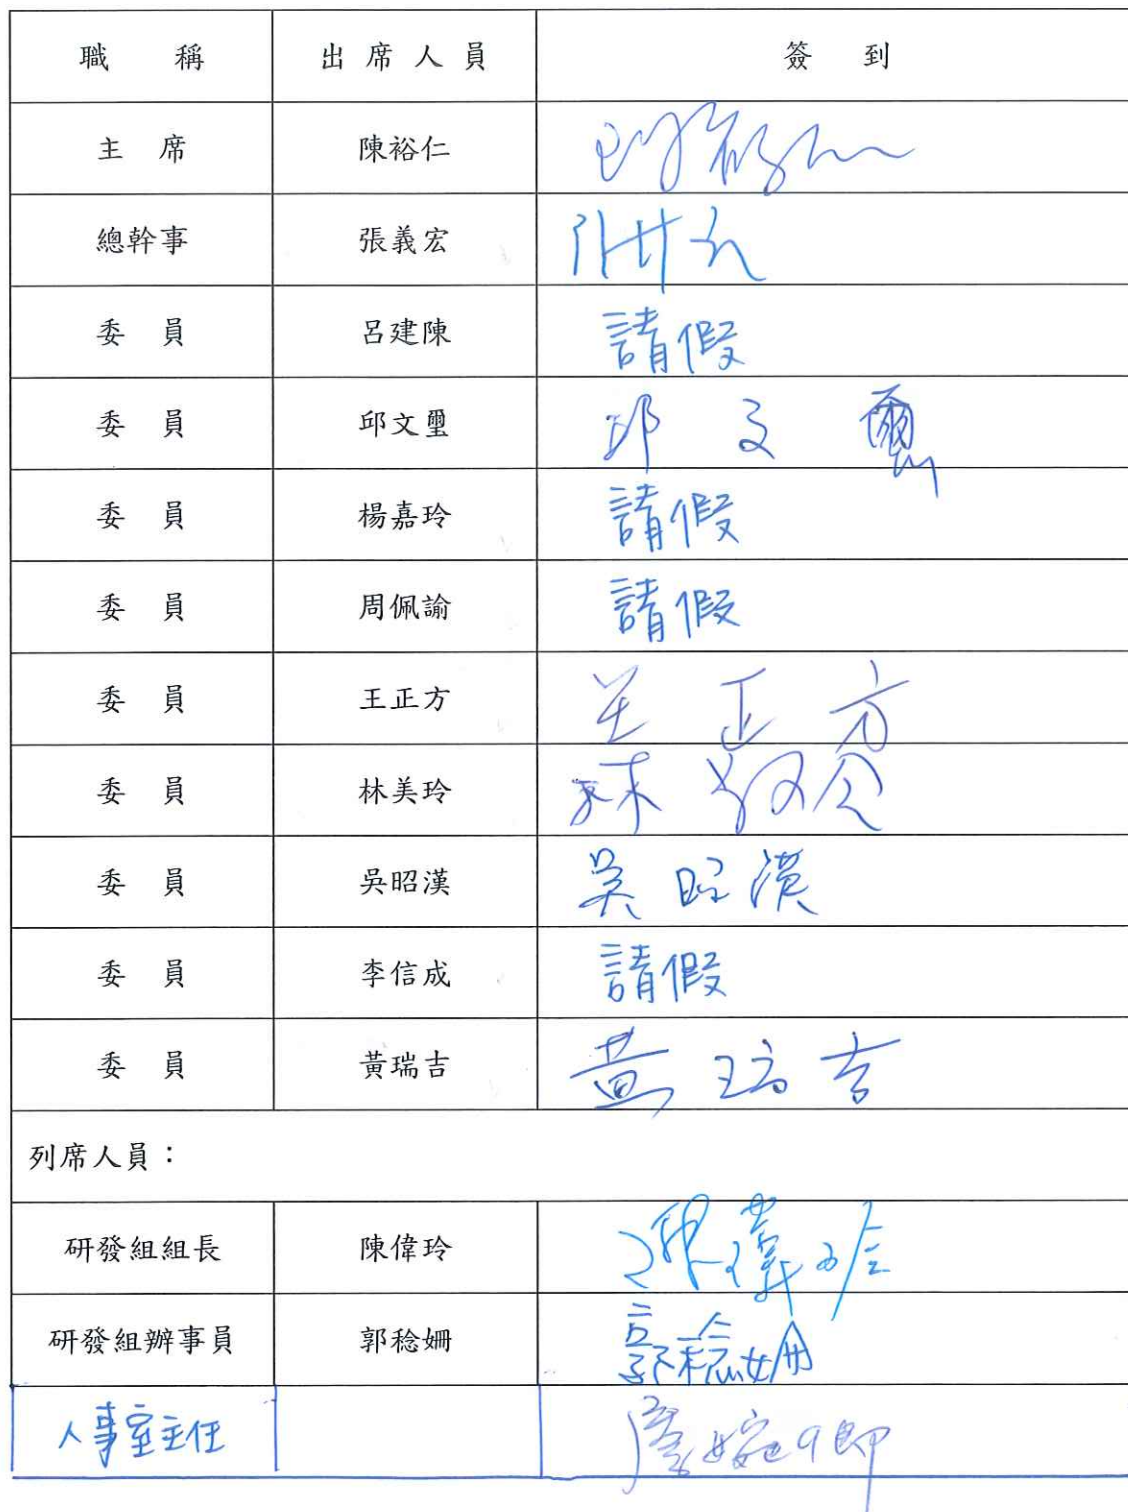 職 稱 出 席 人 員 簽 到
主 席 陳裕仁
總幹事 張義宏
委 員 呂建陳 請假
委 員 邱文璽 邱文璽
委 員 楊嘉玲 請假
委 員 周佩諭 請假
委 員 王正方 王正方
委 員 林美玲 林美玲
委 員 吳昭漢 吳昭漢
委 員 李信成 請假
委 員 黃瑞吉 黃瑞吉
列席人員：
研發組組長 陳偉玲 陳偉玲
研發組辦事員 郭稔姍 郭稔姍
人事室主任